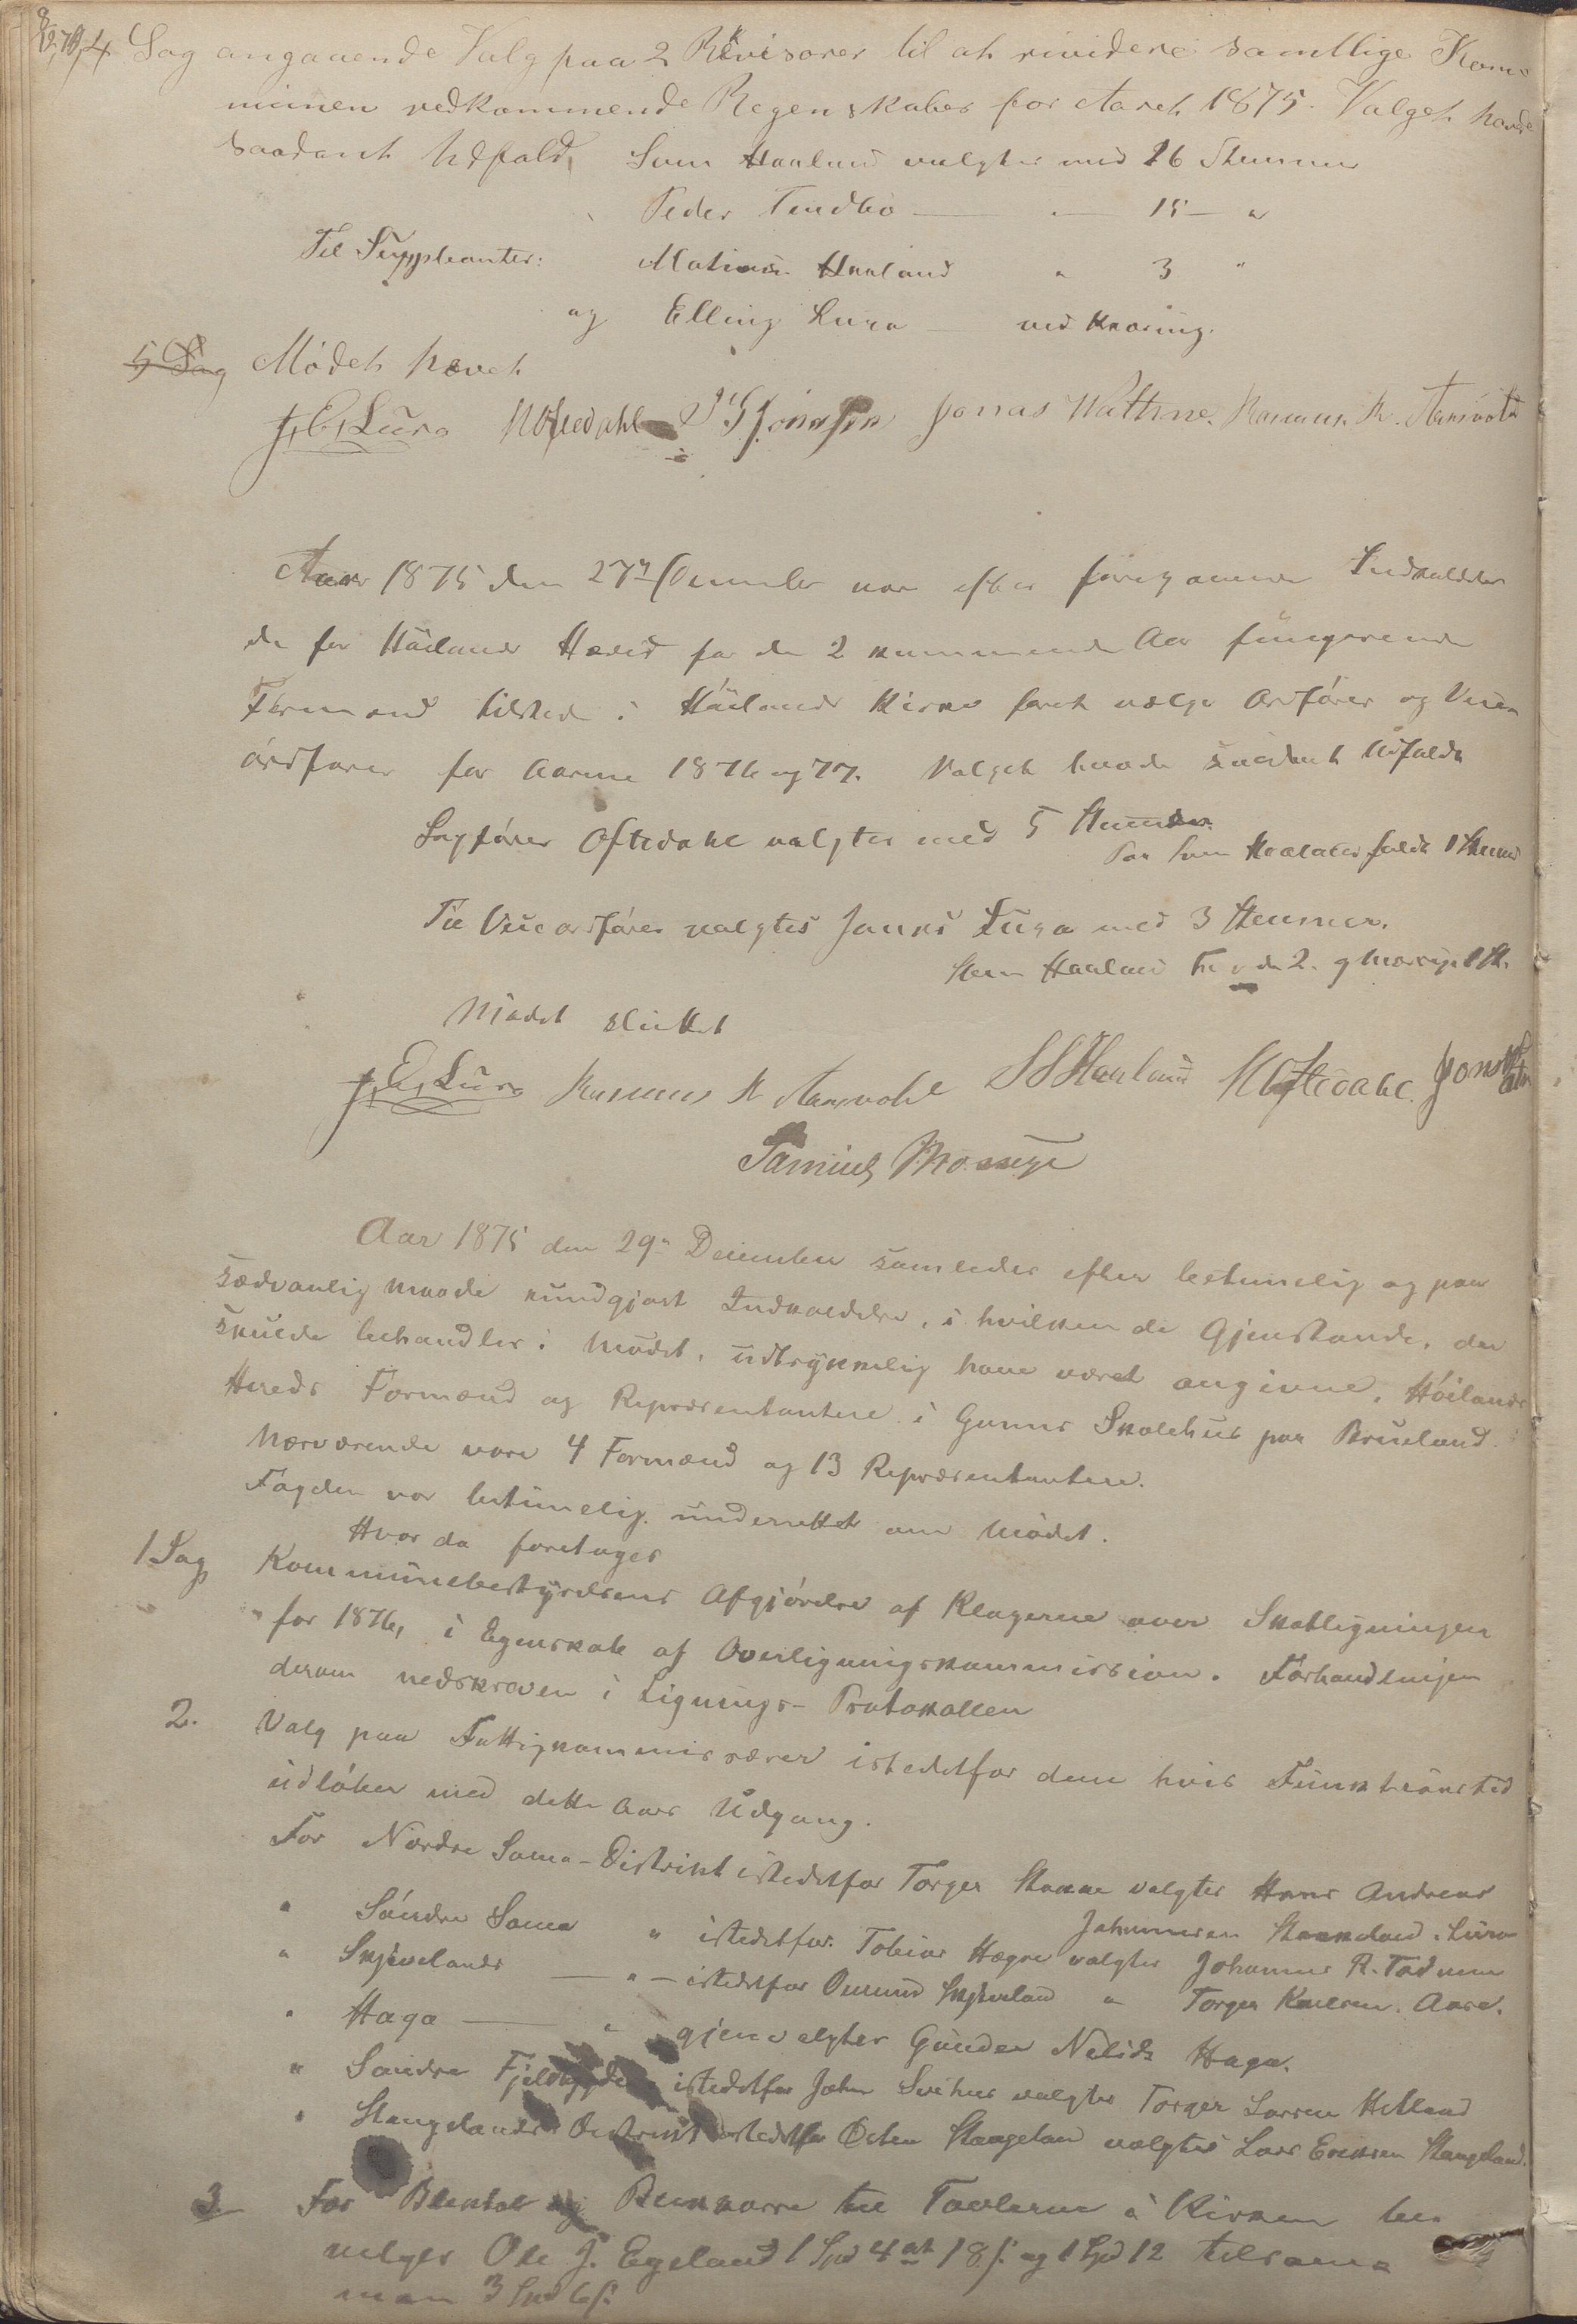 4 Sag angaaende Valg paa 2 Revisorer til at rividere samtlige Kom-
munen vedkommende Regenskaber for Aaret 1875. Valget havde
saadant Udfald, Sven Haaland valgtes med 16 Stemmer
Peder Tendbø — " — 15 — "
Til Suppleanter: Mathias Haaland " 3 "
og Elling Lura — ved Kaaring.
5 Sag Mødet hævet
J. E. Lura M Oftedahl Jonas Wathne. Rasmus R. Aarsvold
Aar 1875 den 27de December var efter foregaaende Indkaldelse
de for Høilands Hered for de 2 kommende Aar fungerende
Formænd tilstede i Høilands Kirke foret vælge Ordfører og Vice
ordfører for Aarene 1876 og 77. Valget havde saadant Udfald
Sagfører Oftedahl valgtes med 5 Stemmer.
Paa Sven Haaland faldt 1 Stemme
Til Viceordfører valgtes Jonas Lura med 3 Stemmer.
Sven Haaland fik de 2. og Mossige 1 St.
Mødet sluttet
J. E. Lura Rasmus R Aarsvold S S Haaland M Oftedahl. Jonas Wathne
Samuel Mossige
Aar 1875 den 29de December samledes efter betimelig og paa
sædvanlig Maade kundgjort Indkaldelse, i hvilken de Gjenstande, der
skulde behandles i Mødet, udtrykkelig have været angivne, Høilands
Hereds Formænd og Repræsentantere i Gunnar Skolehus paa Brueland.
Nærværende vare 4 Formænd og 13 Repræsentantere.
Fogden var betimelig underrettet om Mødet.
Hvor da foretages
1 Sag Kommunebestyrelsens Afgjørelse af Klagerne over Skatligningen
for 1876, i Egenskab af Overligningskommission. Forhandlingen
derom nedskreven i Lignings-Protokollen
2. Valg paa Fattigkommissærer istedetfor dem hvis Funktionstid
udløber med dette Aars Udgang.
For Nordre Soma-Distrikt istedetfor Torger Stokke valgtes Hans Andreas
Johannesen Stokkeland, Lura
" Søndre Soma " istedetfor Tobias Hogne valgtes Johannes R. Todnem
" Skjævelands — " — istedetfor Omund Skjæveland " Torger Knudsen Aase.
" Haga — " gjenvalgtes Gunder Nelids Haga.
" Søndre Fjeldbygde istedetfor John Svihus valgtes Torger Larsen Hetland
" Stangelands Distrikt istedetfor Osten Stangeland valgtes Lars Eriksen Stangeland.
3 For Blekhol og Penkasse til Tavlerne i Kirken be-
vilges Ole J. Egeland 1 Spd 4 ort 18 s. og 1 Spd 12 tilsam-
men 3 Spd 6 s.